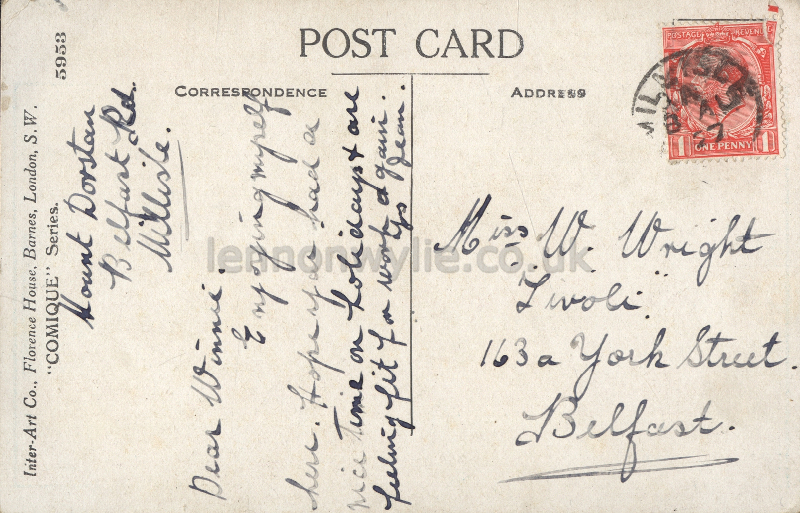 POST CARD
CORRESPONDENCE
ADDRESS
Inter-Art Co., Florence House, Barnes, London, S.W.
"COMIQUE" Series.
5953
Mount Dorstan
Belfast Rd.
Millisle.
Dear Winnie.
Enjoying myself
here. Hope you had a
nice time on holidays & are
feeling fit for work again.
Jean.
Miss W. Wright
"Tivoli"
163a York Street.
Belfast.
POSTAGE REVENUE
ONE PENNY
1 1
27
lennonwylie.co.uk